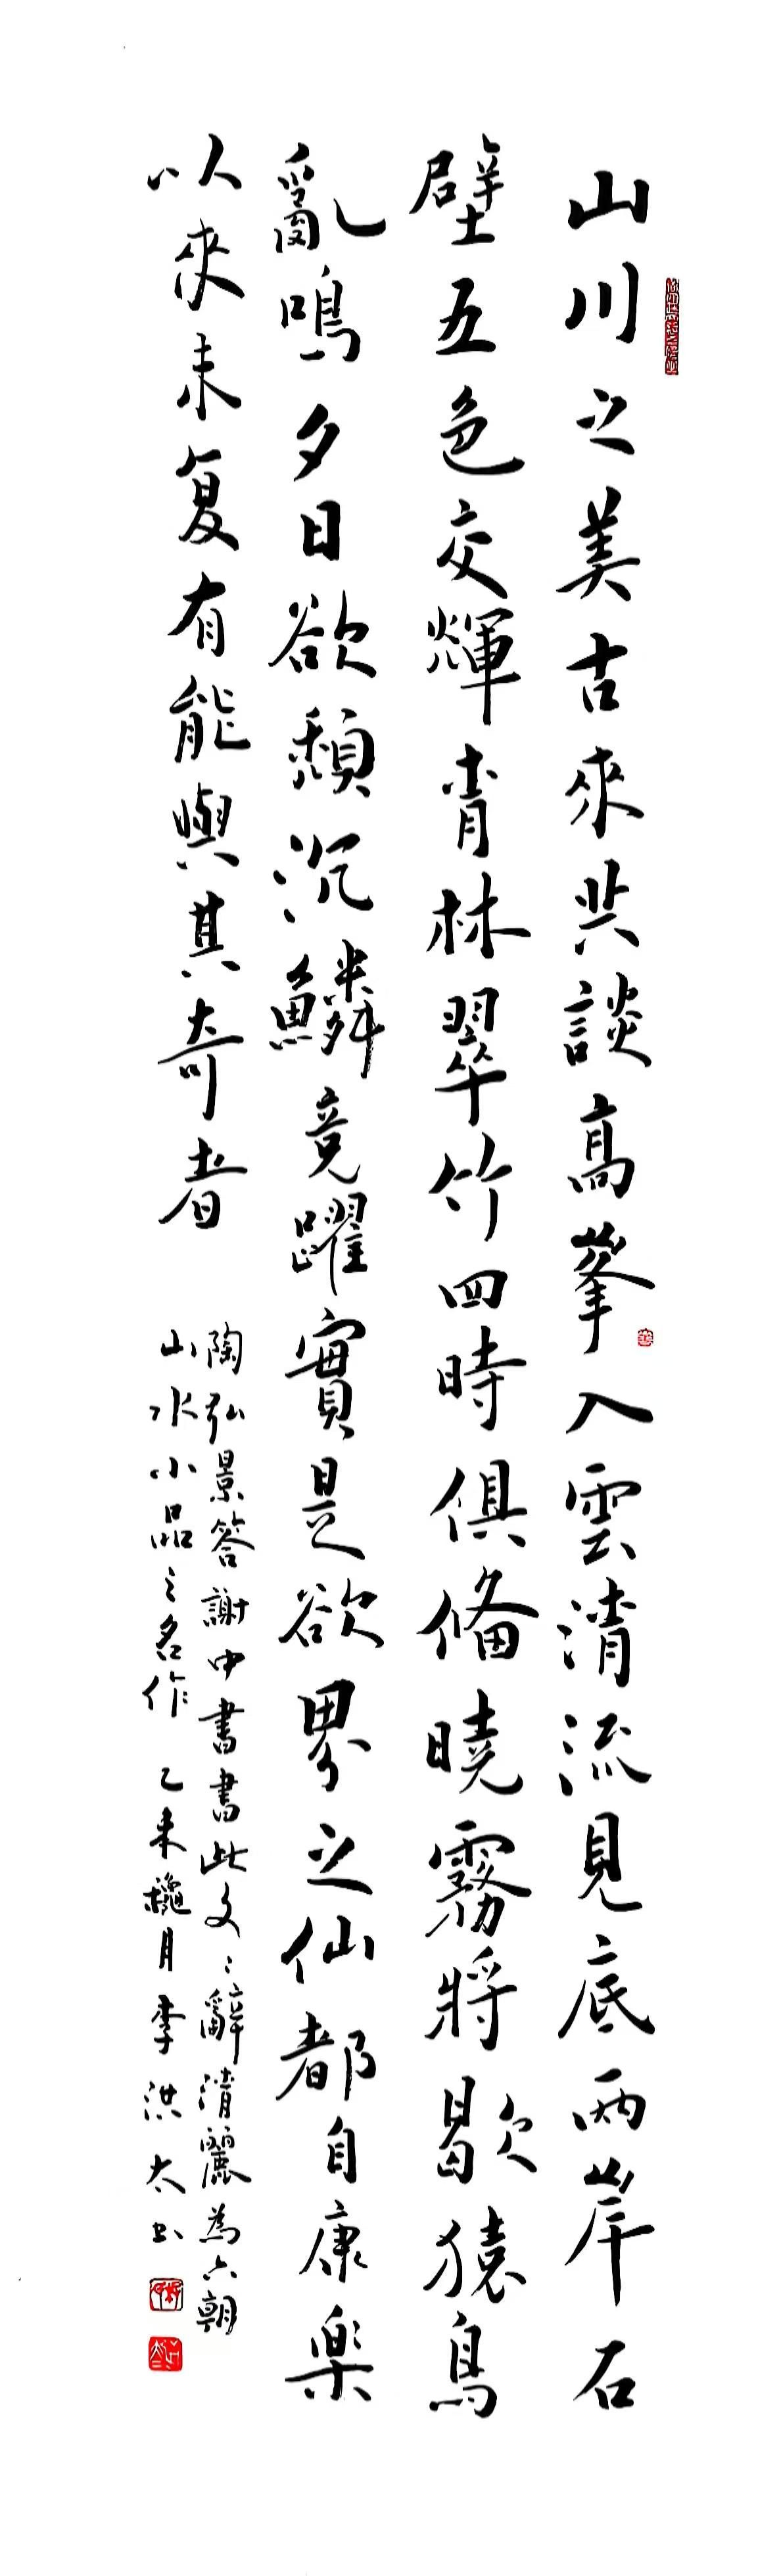 山川之美古來共談高峯入雲清流見底兩岸石
壁五色交輝青林翠竹四時俱備曉霧將歇猿鳥
亂鳴夕日欲頹沉鱗競躍實是欲界之仙都自康樂
以來未复有能與其奇者
陶弘景答謝中書書此文〻辭清麗為六朝
山水小品之名作 乙未穐月李洪太书